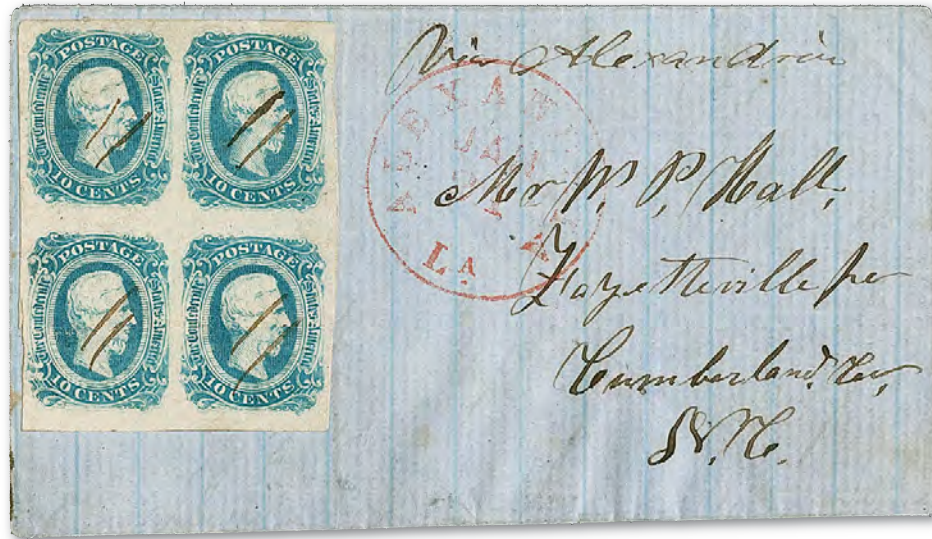 POSTAGE
The Confederate States of America
10 CENTS
POSTAGE
The Confederate States of America
10 CENTS
POSTAGE
The Confederate States of America
10 CENTS
POSTAGE
The Confederate States of America
10 CENTS
Via Alexandria
JAN
LA
Mr W. P. Hall,
Fayetteville
Cumberland. Co.
N.C.